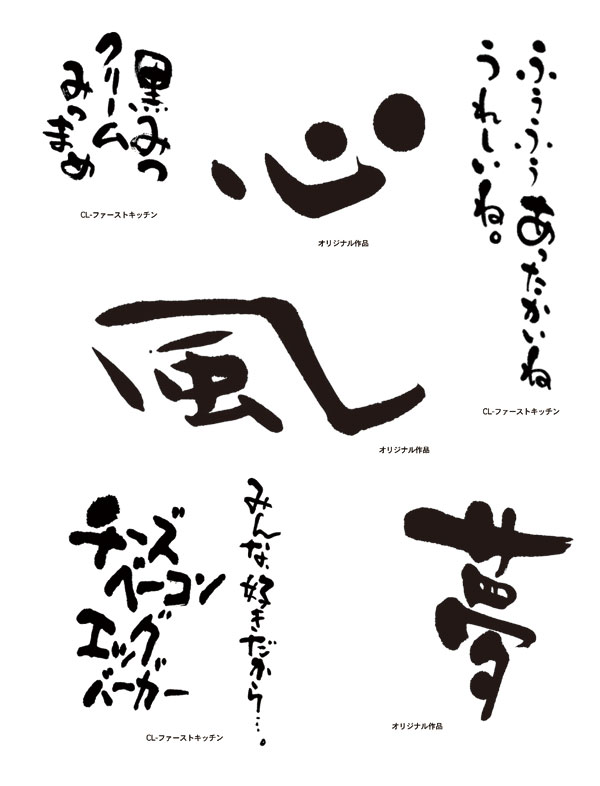 黒みつ
クリーム
みつまめ
CL-ファーストキッチン
心
オリジナル作品
ふぅふぅ あったかいね
うれしいね。
CL-ファーストキッチン
風
オリジナル作品
チーズ
ベーコン
エッグ
バーガー
みんな、好きだから…。
CL-ファーストキッチン
夢
オリジナル作品